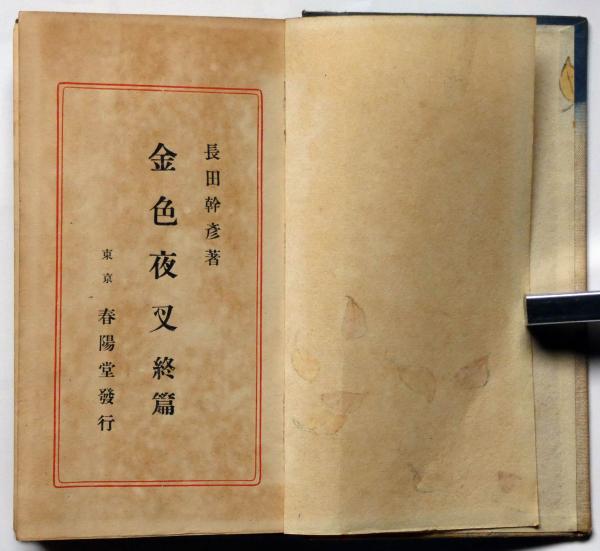 長田幹彦著
金色夜叉終篇
東京 春陽堂發行